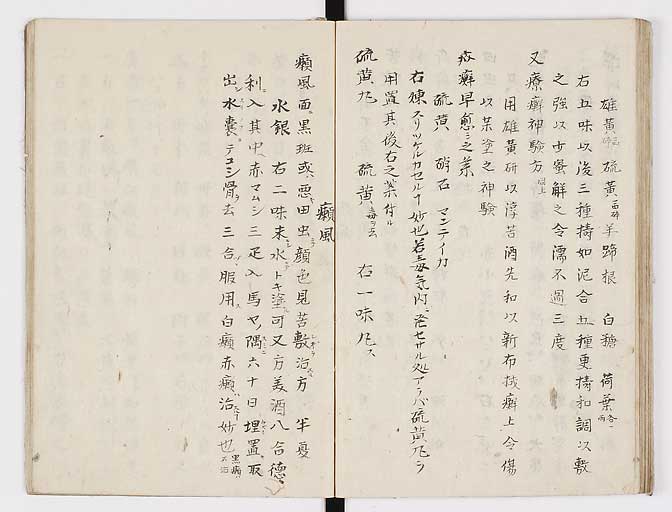 雄黄 硫黄 羊蹄根 白糖 荷葉各一両
右五味以後三種擣如泥合五種更擣和調以敷
之強以中蜜解之令濡不過三度
又療癬神験方同上
用雄黄研以淳苦酒先和以新布拭癬上令傷
以薬塗之神験
疥癬早愈之薬
硫黄 硝石 マンテイカ
右煉スリツケルカセルナ妙也若毒気内ニ発セサル処アラバ硫黄丸ヲ
用置其後右之薬付ル
硫黄丸 硫黄毒ヲ去 右一味丸ス
癩風
癩風面黒斑或悪田虫顔色見苦敷治方 半夏
水銀 右二味末水トキ塗可又方美酒八合徳
利入其中赤マムシ三疋入馬ヤノ隅六十日埋置取
出水嚢ニテコシ骨去三合服用白癩赤癩治妙也黒癩不治